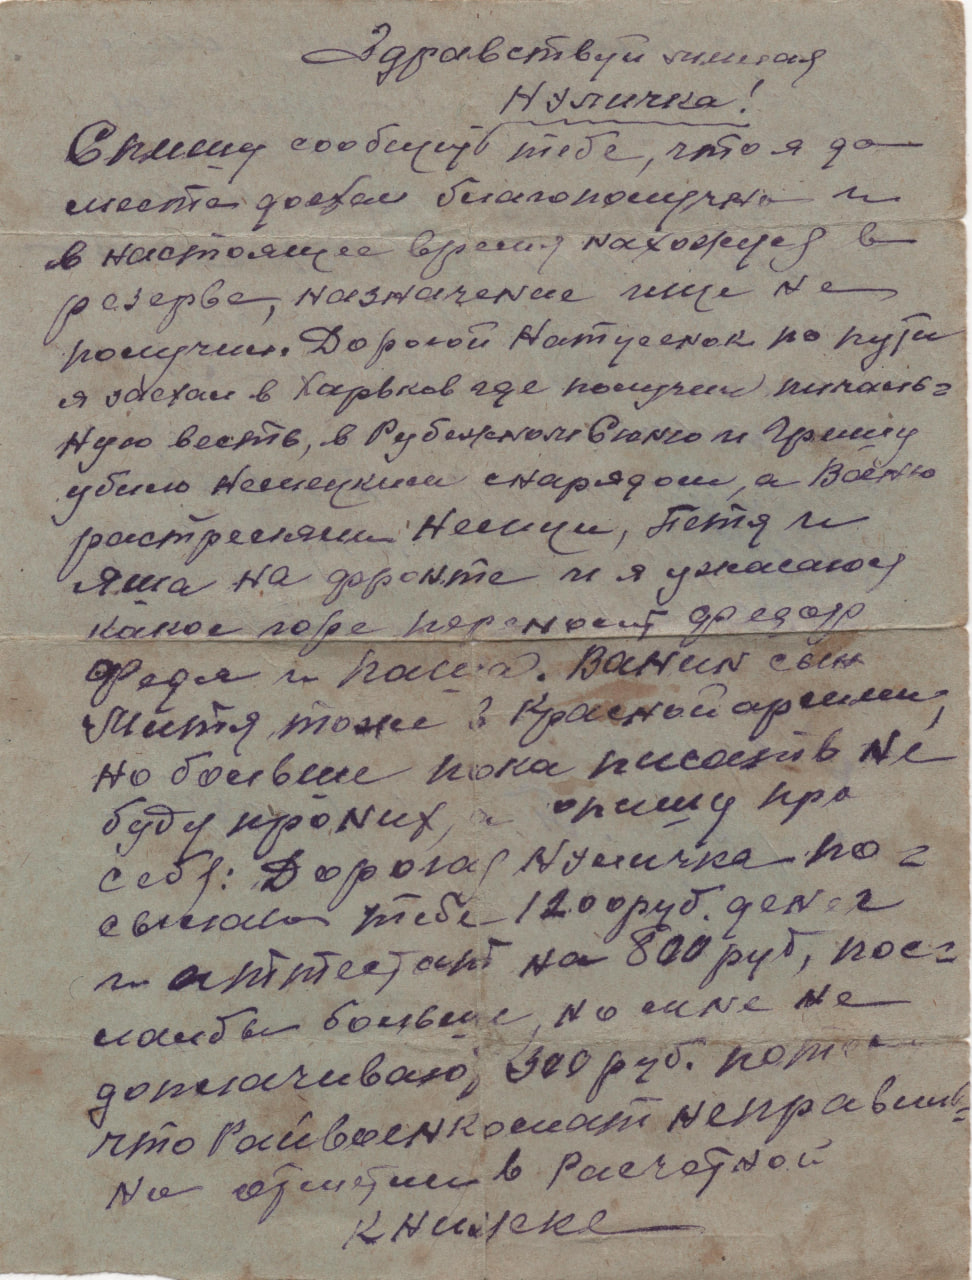 Здравствуй милая
Нуличка!
Спешу сообщить тебе, что я до
места доехал благополучно и
в настоящее время нахожуся в
резерве, назначение ище не
получил. Дорогой Натусенок по пути
я заехал в Харьков где получил пичаль=
ную весть, в Рубежном Сюню и Гришу
убило Немецким снарядом, а Ваню
растреляли Немцы, Петя и
Яша на фронте и я ужасаюся
какое горе переносит федор
Федя и Паша. Ванин сын
Митя тоже в Красной армии,
но больше пока писать не
буду про них, а опишу про
себя: Дорогая Нуличка по=
сылаю тебе 1200 руб. денег
и аттестат на 800 руб, пос=
лалбы больше, но мне не
доплачивают 300 руб. потому
что Райвоенкомат неправиль=
но отметил в Расчетной
книжке